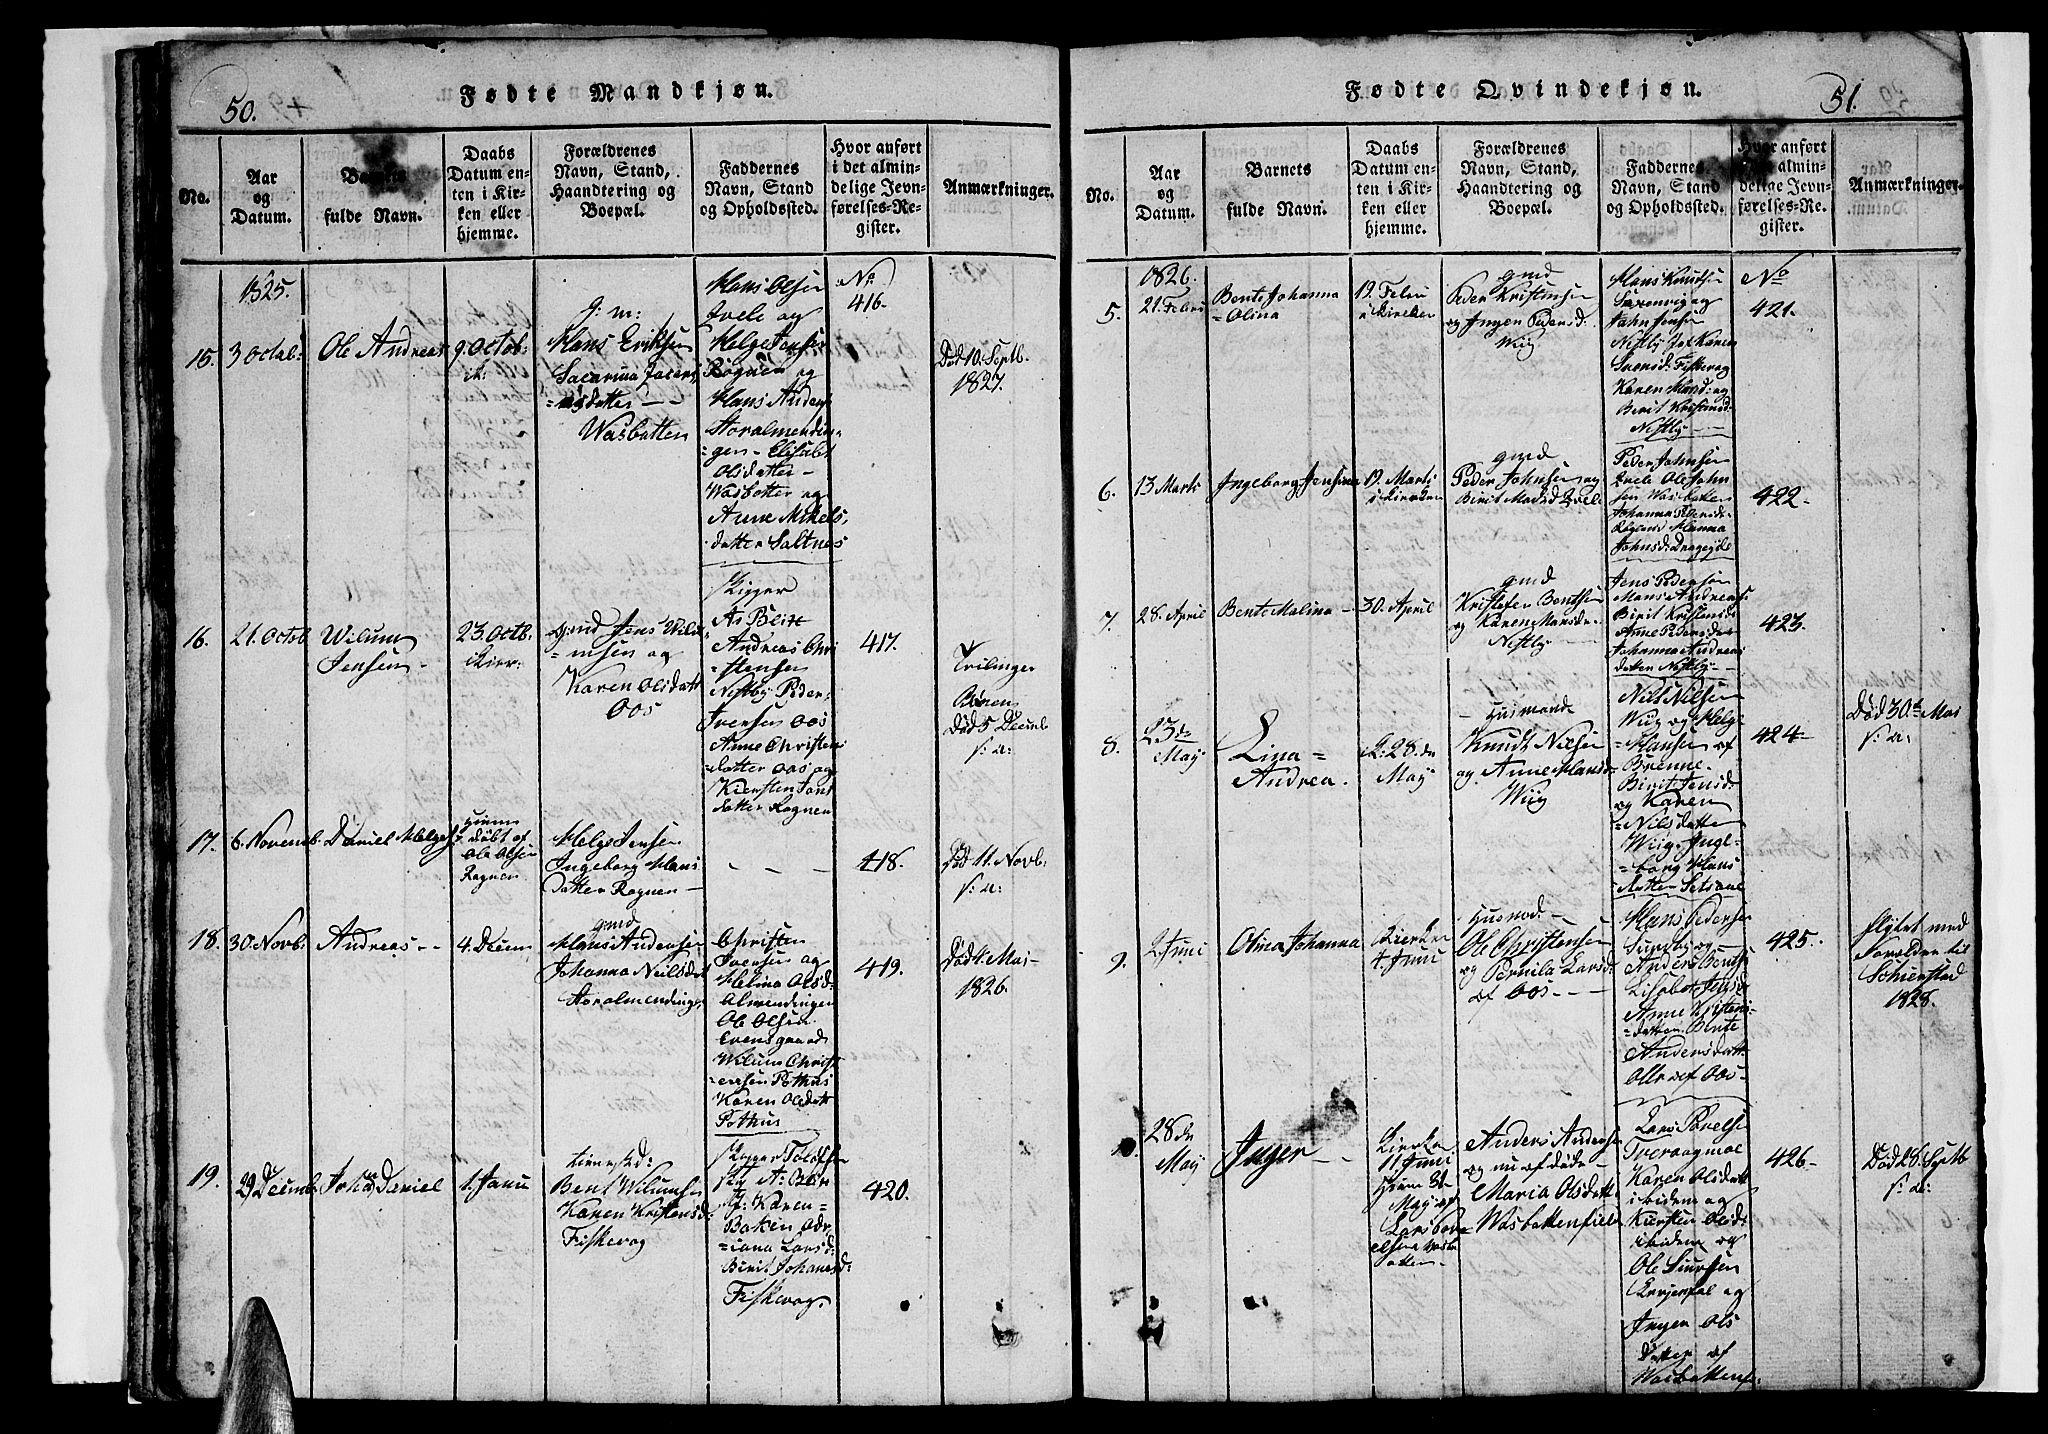 50.
Fødte Mandkjøn.
No.
Aar
og
Datum.
Barnets
fulde Navn.
Daabs
Datum en-
ten i Kir-
ken eller
hjemme.
Forældrenes
Navn, Stand,
Haandtering og
Boepæl.
Faddernes
Navn, Stand
og Opholdssted.
Hvor anført
i det almin-
delige Jevn-
førelses-Re-
gister.
Anmærkninger.
1825.
15.
3 Octob:
Ole Andreas
9. Octob:
g: m:
Hans Eriksen
datter
Wasbotten
Hans Olsen
Qvele og
Helge Jensen
Rognen og
Hans Anders
Storalmendin-
gen - Elisabt
Olsdatter -
Wasbotten og
Anne Mikels
datter Saltnes
No
416.
Død 10. Septb.
1827.
16.
21. Octob
Wilum
Jensen
23. Octb.
i Kirr:
gmd Jens Wilu
=msen og
Karen Olsdatt
Oos
Skigger
As Blix
Andreas Chri
=stensen
Nestby Peder
Iversen Oos
Anne Christen
=datter Oos og
Kiersten
datter Rognen
417.
Trilinger
Børen
Død 5 Decemb
s: a:
17.
6. Novemb.
Daniel Helges:
Hiem
døbt af
Ole Olsen
Rognen
Helge Jensen
Ingeborg Hans
datter Rognen
- - -
418.
Død 11. Novb:
s: a:
18.
30. Novb.
Andreas
4. Decem
gmd
Hans Andersen
Johanna Neilsdatt
Storalmendingen
Christen
Iversen og
Helina Olsd:
Almendingen
Ole Olsen
Evensgaard
Wilum Christ
=ensen Pothus
Karen Olsdatt
Pothus
419.
Død 4. Mai
1826.
19.
29 Decemb.
Johan Daniel
1. Janu
Bent Wilumsen
Karen Kristensd:
Fiskevog
A: Blix
Karen
Birit Johansd:
Fiskevog.
420.
Fødte Qvindekjøn.
51.
No.
Aar
og
Datum.
Barnets
fulde Navn.
Daabs
Datum en-
ten i Kir-
ken eller
hjemme.
Forældrenes
Navn, Stand,
Haandtering og
Boepæl.
Faddernes
Navn, Stand
og Opholdssted.
Hvor anført
i det almin-
delige Jevn-
førelses-Re-
gister.
Anmærkninger.
1826.
5.
21. Febru
Bente Johanna
=Olina
19. Febru
i Kirken
gmd
Peder Kristensen
og Inger Pedersd:
Wiig
Hans Knudsen
Saxenvig og
John Jensen
Nestby
Svensd: Fiskevog
Karen Hansd: og
Birit Kristensd
Nestby
No
421.
6.
13 Marts
Ingeborg Jensina
19. Marts
i Kirken
gmd
Peder Johnsen og
Birit Madsd Qvele
Peder Johnsen
Qvele Ole John
sen Wasbotten
Johanna Pedersd:
Rognen Hanna
Johnsd: Drageide
422.
7.
28. April
Bente Malina
30. April
gmd
Kristofer Bentsen
og Karen Hansdr.
Nestby
Jens Pedersen
Hans Andreas
Birit Kristensd
Anne Pedersdr
Johanna Andreas
datter Nestby
423.
8.
23 de
May
Lina=
Andrea.
28. de
May
Husmand
Knudt Nilsen
og Anne Hansd
Wiig
Nils Nilsen
Wiig og Helge
Hansen af
Brenne
Birit Jensd:
og Karen
Nilsdatter
Wiig. Inge
=borg Hans
datter Setsaae
424
Død 30te Mai
s: a:
9.
2. Juni
Olina Johanna
Kierken
4. Juni
Husmd:
Ole Christensen
og Pernila Larsd:
af Oos
Hans Pedersen
Anders Bentsen
Lisabet Jensd
Anne Kristens
=datter Bente
Andersdatt
Alle af Oos
425.
flytet med
Foreldre til
1828.
10.
28 de
May
Inger
Kierken
11 Juni
May af
Anders Andersen
og nu afdøde
Maria Olsdatt
Wasbottenfield
Lars Povelsen
Tveraamoe
Karen Olsdatt
ibidem og
Kiersten Olsd:
ibidem og
Ole Siursen
og
Inger Ols
datter af
Wasbottenf:
426.
Død 28. Septb
s: a: